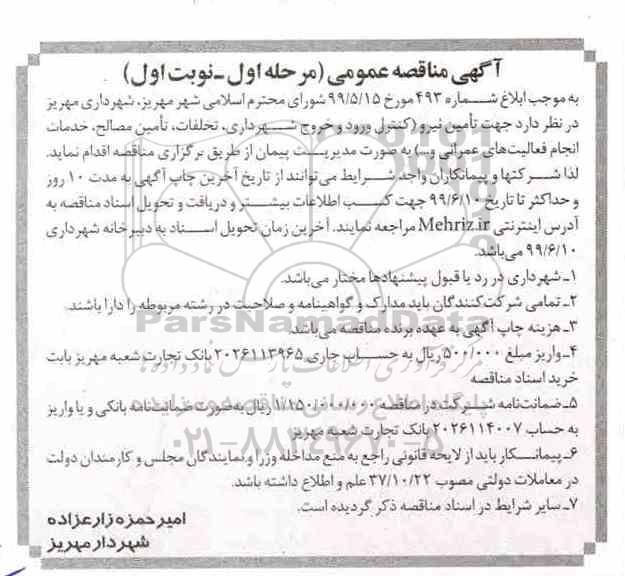 آگهی مناقصه عمومی (مرحله اول ـ نوبت اول)
به موجب ابلاغ شماره ۴۹۳ مورخ ۹۹/۵/۱۵ شورای محترم اسلامی شهر مهریز، شهرداری مهریز
در نظر دارد جهت تأمین نیرو (کنترل ورود و خروج شهرداری، تخلفات، تأمین مصالح، خدمات
انجام فعالیت‌های عمرانی و...) به صورت مدیریت پیمان از طریق برگزاری مناقصه اقدام نماید.
لذا شرکتها و پیمانکاران واجد شرایط می‌توانند از تاریخ آخرین چاپ آگهی به مدت ۱۰ روز
و حداکثر تا تاریخ ۹۹/۶/۱۰ جهت کسب اطلاعات بیشتر و دریافت و تحویل اسناد مناقصه به
آدرس اینترنتی Mehriz.ir مراجعه نمایند. آخرین زمان تحویل اسناد به دبیرخانه شهرداری
۹۹/۶/۱۰ می‌باشد.
۱ـ شهرداری در رد یا قبول پیشنهادها مختار می‌باشد.
۲ـ تمامی شرکت‌کنندگان باید مدارک و گواهینامه و صلاحیت در رشته مربوطه را دارا باشند.
۳ـ هزینه چاپ آگهی به عهده برنده مناقصه می‌باشد.
۴ـ واریز مبلغ ۵۰۰/۰۰۰ ریال به حساب جاری ۲۰۲۶۱۱۳۹۶۵ بانک تجارت شعبه مهریز بابت
خرید اسناد مناقصه
۵ـ ضمانت‌نامه شرکت در مناقصه ۱/۱۵۰/۰۰۰/۰۰۰ ریال به‌صورت ضمانت‌نامه بانکی و یا واریز
به حساب ۲۰۲۶۱۱۴۰۰۷ بانک تجارت شعبه مهریز
۶ـ پیمانکار باید از لایحه قانونی راجع به منع مداخله وزرا و نمایندگان مجلس و کارمندان دولت
در معاملات دولتی مصوب ۳۷/۱۰/۲۲ علم و اطلاع داشته باشد.
۷ـ سایر شرایط در اسناد مناقصه ذکر گردیده است.
امیرحمزه زارعزاده
شهردار مهریز
ParsNamadData
۰۲۱-۸۸۳۴۹۶۷۰-۵